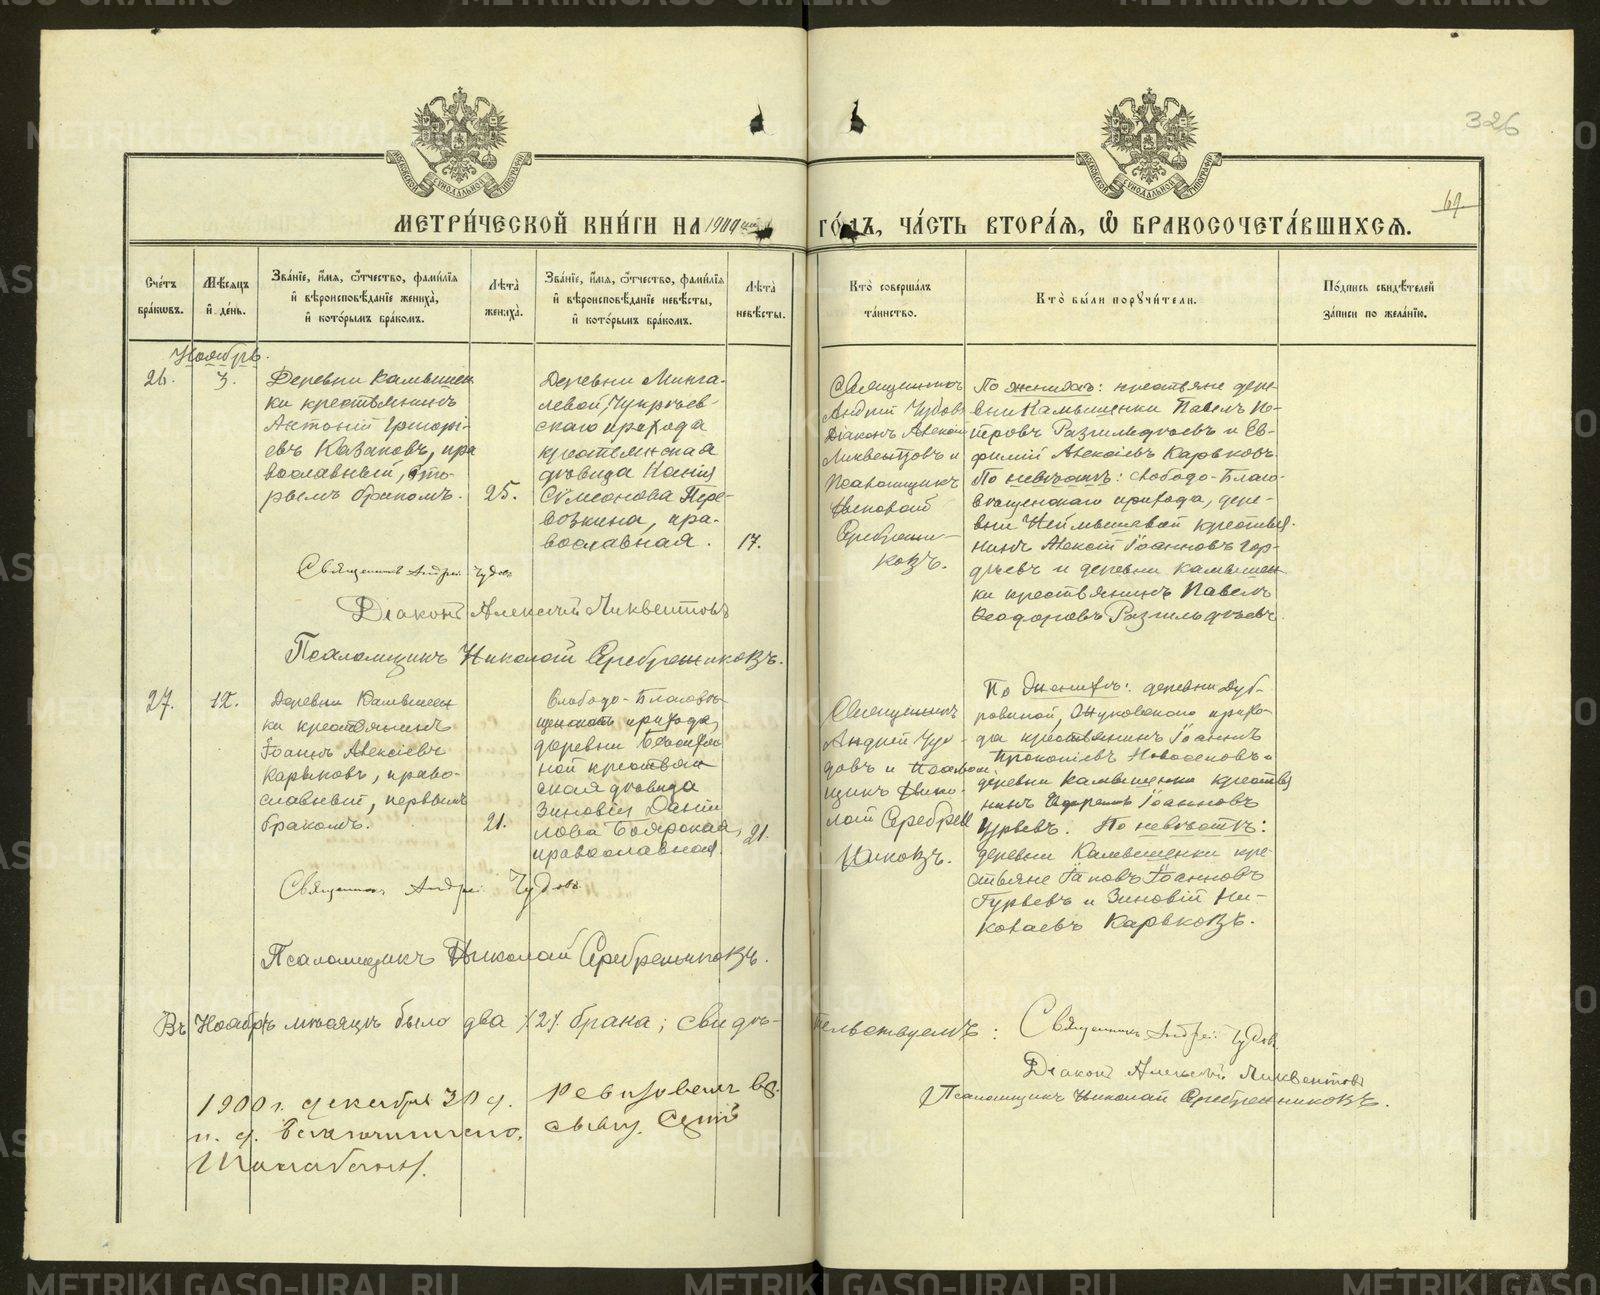 326
69
МЕТРИ́ЧЕСКОЙ КНИ́ГИ НА 1900 ГО́ДЪ, ЧА́СТЬ ВТОРА́Я, Ѡ҆ БРАКОСОЧЕТА́ВШИХСЯ.
Сче́тъ бра́кѡвъ.
Мѣ́сяцъ и҆ де́нь.
Зва́нїе, и҆́мя, ѻ҆́тчество, фами́лїя и҆ вѣроисповѣ́данїе жениха̀, и҆ кото́рымъ бра́комъ.
Лѣ́та жениха̀.
Зва́нїе, и҆́мя, ѻ҆́тчество, фами́лїя и҆ вѣроисповѣ́данїе невѣ́сты, и҆ кото́рымъ бра́комъ.
Лѣ́та невѣ́сты.
Кто̀ соверша́лъ та́инство.
Кто̀ бы́ли порꙋчи́тели.
По́дпись свидѣ́телей за́писи по жела́нїю.
Ноябрь.
26.
3.
Деревни Камышен
ки крестьянинъ
Антоній Григорі-
евъ Казаковъ, пра
вославный, вто-
рымъ бракомъ.
25.
Деревни Минга-
левой,
скаго прихода
крестьянская
дѣвица Ксенія
Сѵмеонова Пере-
возкина, пра-
вославная.
17.
Священникъ
Андрей Чудовъ
Діаконъ Алексій
Ликвентовъ и
Псаломщикъ
Николай
Серебрени-
ковъ.
По женихѣ: крестьяне дер-
вни Камышенки Павелъ Пе-
тровъ Разгильдѣевъ и Ев-
фимій Алексіевъ Карьковъ.
По невѣстѣ: Слободо-Благо-
вѣщенскаго прихода, дере-
вни крестья-
нинъ Алексій Іоанновъ Гор-
дѣевъ и деревни Камышен-
ки крестьянинъ Павелъ
Ѳеодоровъ Разгильдѣевъ.
Священникъ Андрей Чудовъ
Діаконъ Алексій Ликвентовъ
Псаломщикъ Николай Серебрениковъ.
27.
12.
Деревни Камышен
ки крестьянинъ
Іоаннъ Алексіевъ
Карьковъ, право-
славный, первымъ
бракомъ.
21.
Слободо-Благовѣ-
щенскаго прихода,
деревни
ной крестьян
ская дѣвица
Зиновія Дани
лова Боярская,
православная.
21.
Священникъ
Андрей Чу-
довъ и Псалом
щикъ Нико-
лай Серебрен
никовъ.
По женихѣ: деревни Дуб-
ровиной, прихо-
да крестьянинъ Іоаннъ
Прокопіевъ Новоселовъ и
деревни Камышенки крестья
нинъ Іоанновъ
Гурьевъ. По невѣстѣ:
деревни Камышенки кре-
стьяне Іаковъ Іоанновъ
Гурьевъ и Зиновій Ни-
колаевъ Карьковъ.
Священникъ Андрей Чудовъ
Псаломщикъ Николай Серебренниковъ.
Въ Ноябрѣ мѣсяцѣ было два /2/ брака; свидѣ-
тельствуемъ:
Священникъ Андрей Чудовъ
Діаконъ Алексій Ликвентовъ
Псаломщикъ Николай Серебренниковъ.
1900 г. декабря 30 д. Ревизовалъ
METRIKI.GASO-URAL.RU